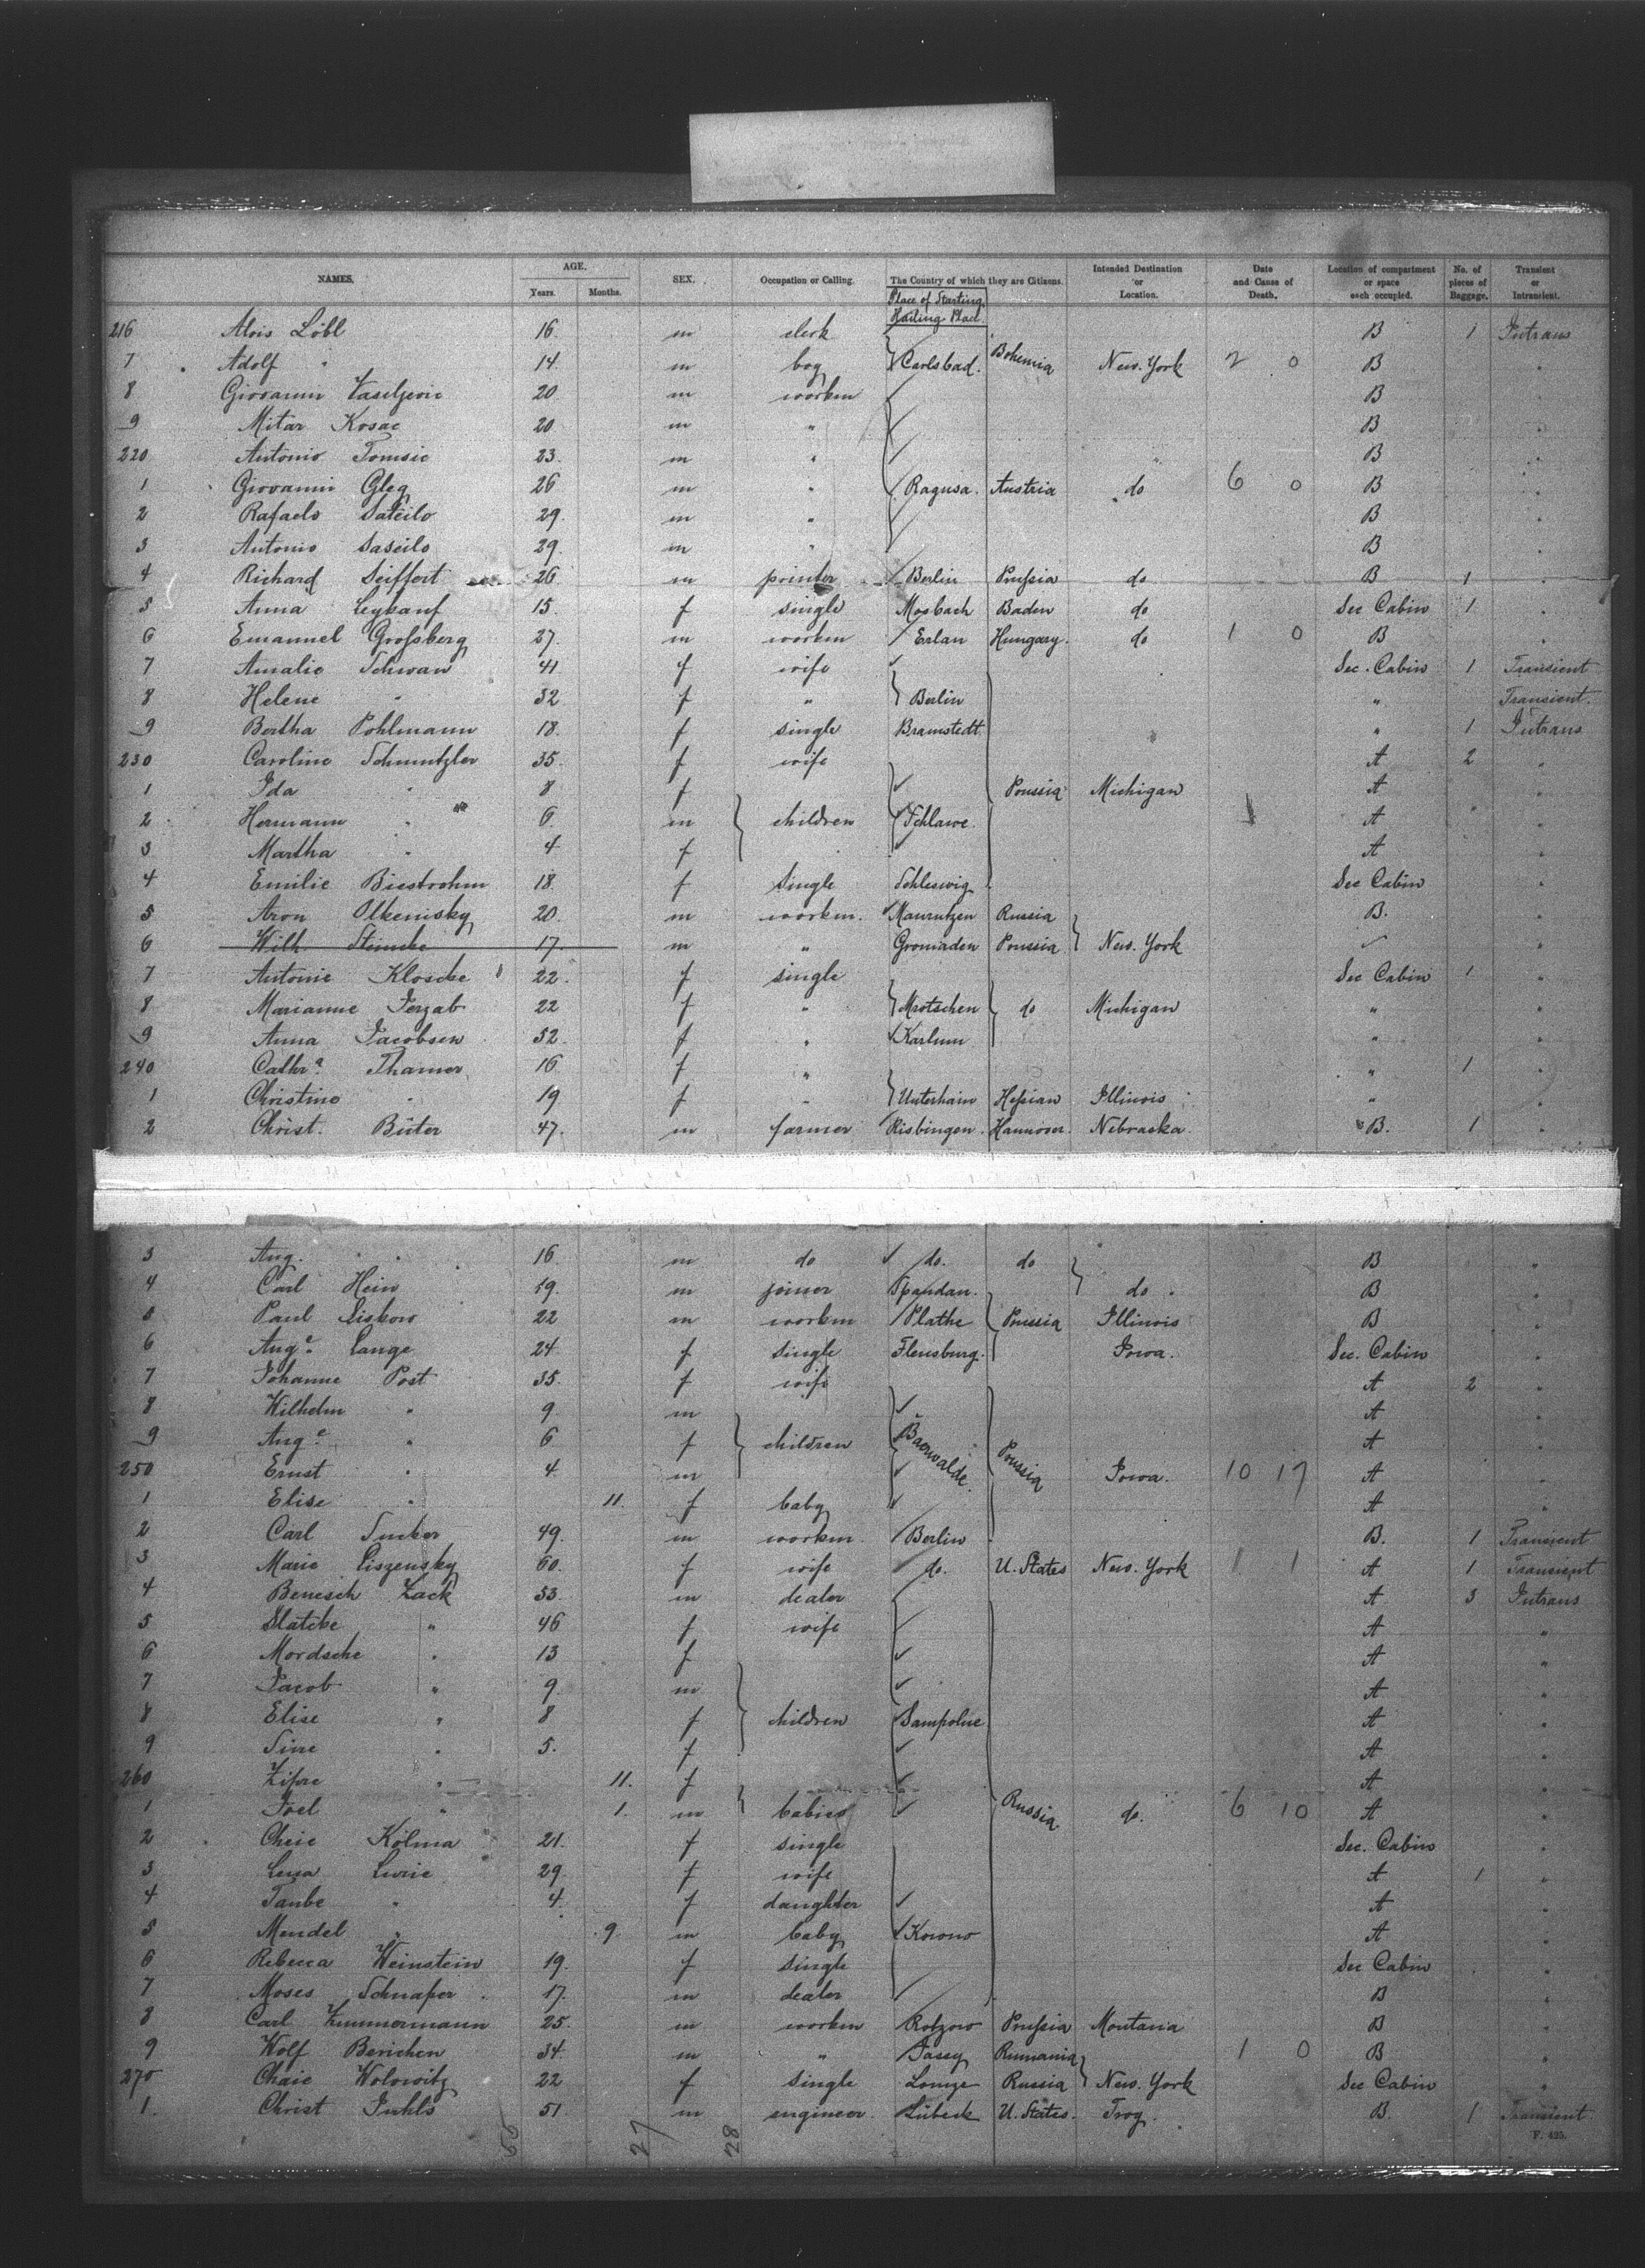 NAMES. AGE. Years. Months. SEX. Occupation or Calling. The Country of which they are Citizens. Intended Destination or Location. Date and Cause of Death. Location of compartment or space each occupied. No. of pieces of Baggage. Transient or Intransient.
Place of Starting.
Hailing Plac.
216 Alois Löbl 16. m clerk B 1 Intrans
7 Adolf " 14. m boy Carlsbad. Bohemia New. York 2 0 B "
8 Giovanni Vasiljevic 20 m workm B "
9 Mitar Kosac 20 m " B "
220 Antonio Tomsic 23. m " B "
1 Giovanni Gleg 26 m " Ragusa. Austria do 6 0 B "
2 Rafaelo 29. m " B "
3 Antonio 29. m " B "
4 Richard Seiffert 26 m printer Berlin Prussia do B 1 "
5 Anna Leykauf 15. f single Mosbach Baden do Sec Cabin 1 "
6 Emanuel Grossberg 27. m workm Erlau Hungary. do 1 0 B "
7 Amalie Schwan 41 f wife Sec. Cabin 1 Transient
8 Helene " 32 f " Berlin " Transient.
9 Bertha Pohlmann 18. f single Bramstedt " 1 Intrans
230 Caroline Schmutzler 35. f wife A 2 "
1 Ida " 8 f Prussia Michigan A "
2 Hermann " 6 m children Schlawe. A "
3 Martha " 4 f A "
4 Emilie Biestrohm 18. f single Schleswig Sec Cabin "
5 Aron Olkenisky 20. m workm. Russia B. "
6 Wilh. 17. m " Gromaden Prussia New. York "
7 Antonie Kloscke 22. f single Sec Cabin 1 "
8 Marianne Jerzab 22 f " Mrotschen do Michigan " "
9 Anna Jacobsen 52. f " Karlum " "
240 Cathr.a Thamer 16 f " " 1 "
1 Christine " 19 f " Unterhain Hessian Illinois " "
2 Christ. Büter 47. m farmer Risbingen. Hannover. Nebraska. B. 1 "
3 Aug. " 16 m do do. do B "
4 Carl Hein 19. m joiner Spandau. do. B "
5 Paul Liskow 22 m workm Plathe Prussia Illinois B "
6 Aug.e Lange 24 f single Flensburg. Iowa. Sec. Cabin "
7 Johanne Post 35. f wife A 2 "
8 Wilhelm " 9 m A "
9 Aug.e " 6 f children Baerwalde. A "
250 Ernst " 4. m Prussia Iowa. 10 17 A "
1 Elise " 11. f baby A "
2 Carl 49. m workm. Berlin B. 1 Transient
3 Marie Liszensky 60. f wife do. U. States New. York 1 1 A 1 Transient
4 Benesch Zack 53. m dealer A 3 Intrans
5 Slatcke " 46 f wife A "
6 Mordsche " 13 f A "
7 Jacob " 9. m A "
8 Elise " 8 f children Sampolne A "
9 Sine " 5. f A "
260 Zipre " 11. f A "
1 Joel " 1. m babies Russia do. 6 10 A "
2 Cheie Kölma 21. f single Sec. Cabin "
3 Lena Lurie 29. f wife A 1 "
4 Taube " 4. f daughter A "
5 Mendel " 9 m baby Kowno A "
6 Rebecca Weinstein 19. f single Sec Cabin "
7 Moses Schnaper 17. m dealer B "
8 Carl Zimmermann 25. m workm Rotzow Prussia Montana B "
9 Wolf Berichen 34. m " Jassy Rumania 1 0 B "
270 Chaie Wolowitz 22 f single Lomza Russia New. York Sec Cabin "
1. Christ Juhls 51. m engineer. Lübeck U. States. Troy. B. 1 Transient
F. 425.
27
28